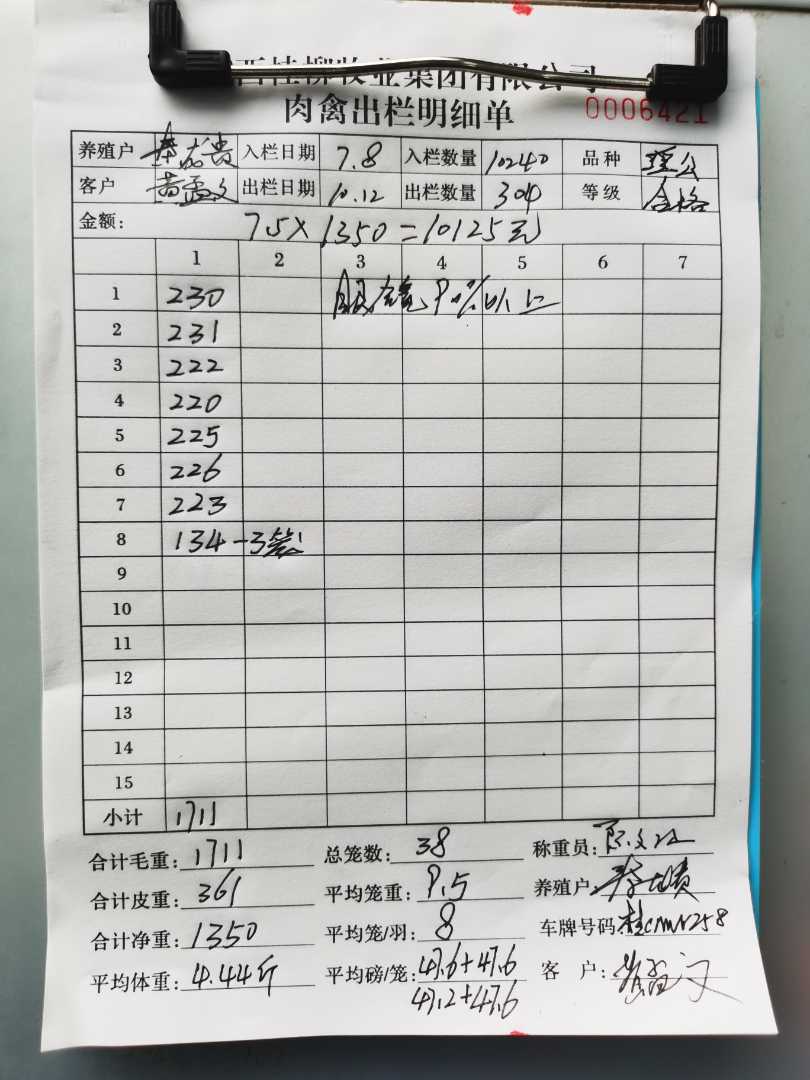 西桂柳牧业集团有限公司
肉禽出栏明细单 0006421
养殖户 入栏日期 7.8 入栏数量 10240 品种
客户 黄孟文 出栏日期 10.12 出栏数量 304 等级 合格
金额: 7.5×1350=10125元
1 2 3 4 5 6 7
1 230 9%以上
2 231
3 222
4 220
5 225
6 226
7 223
8 134-3笼
9
10
11
12
13
14
15
小计 1711
合计毛重: 1711 总笼数: 38 称重员:
合计皮重: 361 平均笼重: 9.5 养殖户
合计净重: 1350 平均笼/羽: 8 车牌号码
平均体重: 4.44斤 平均磅/笼: 47.6+47.6 客 户:
47.2+47.6